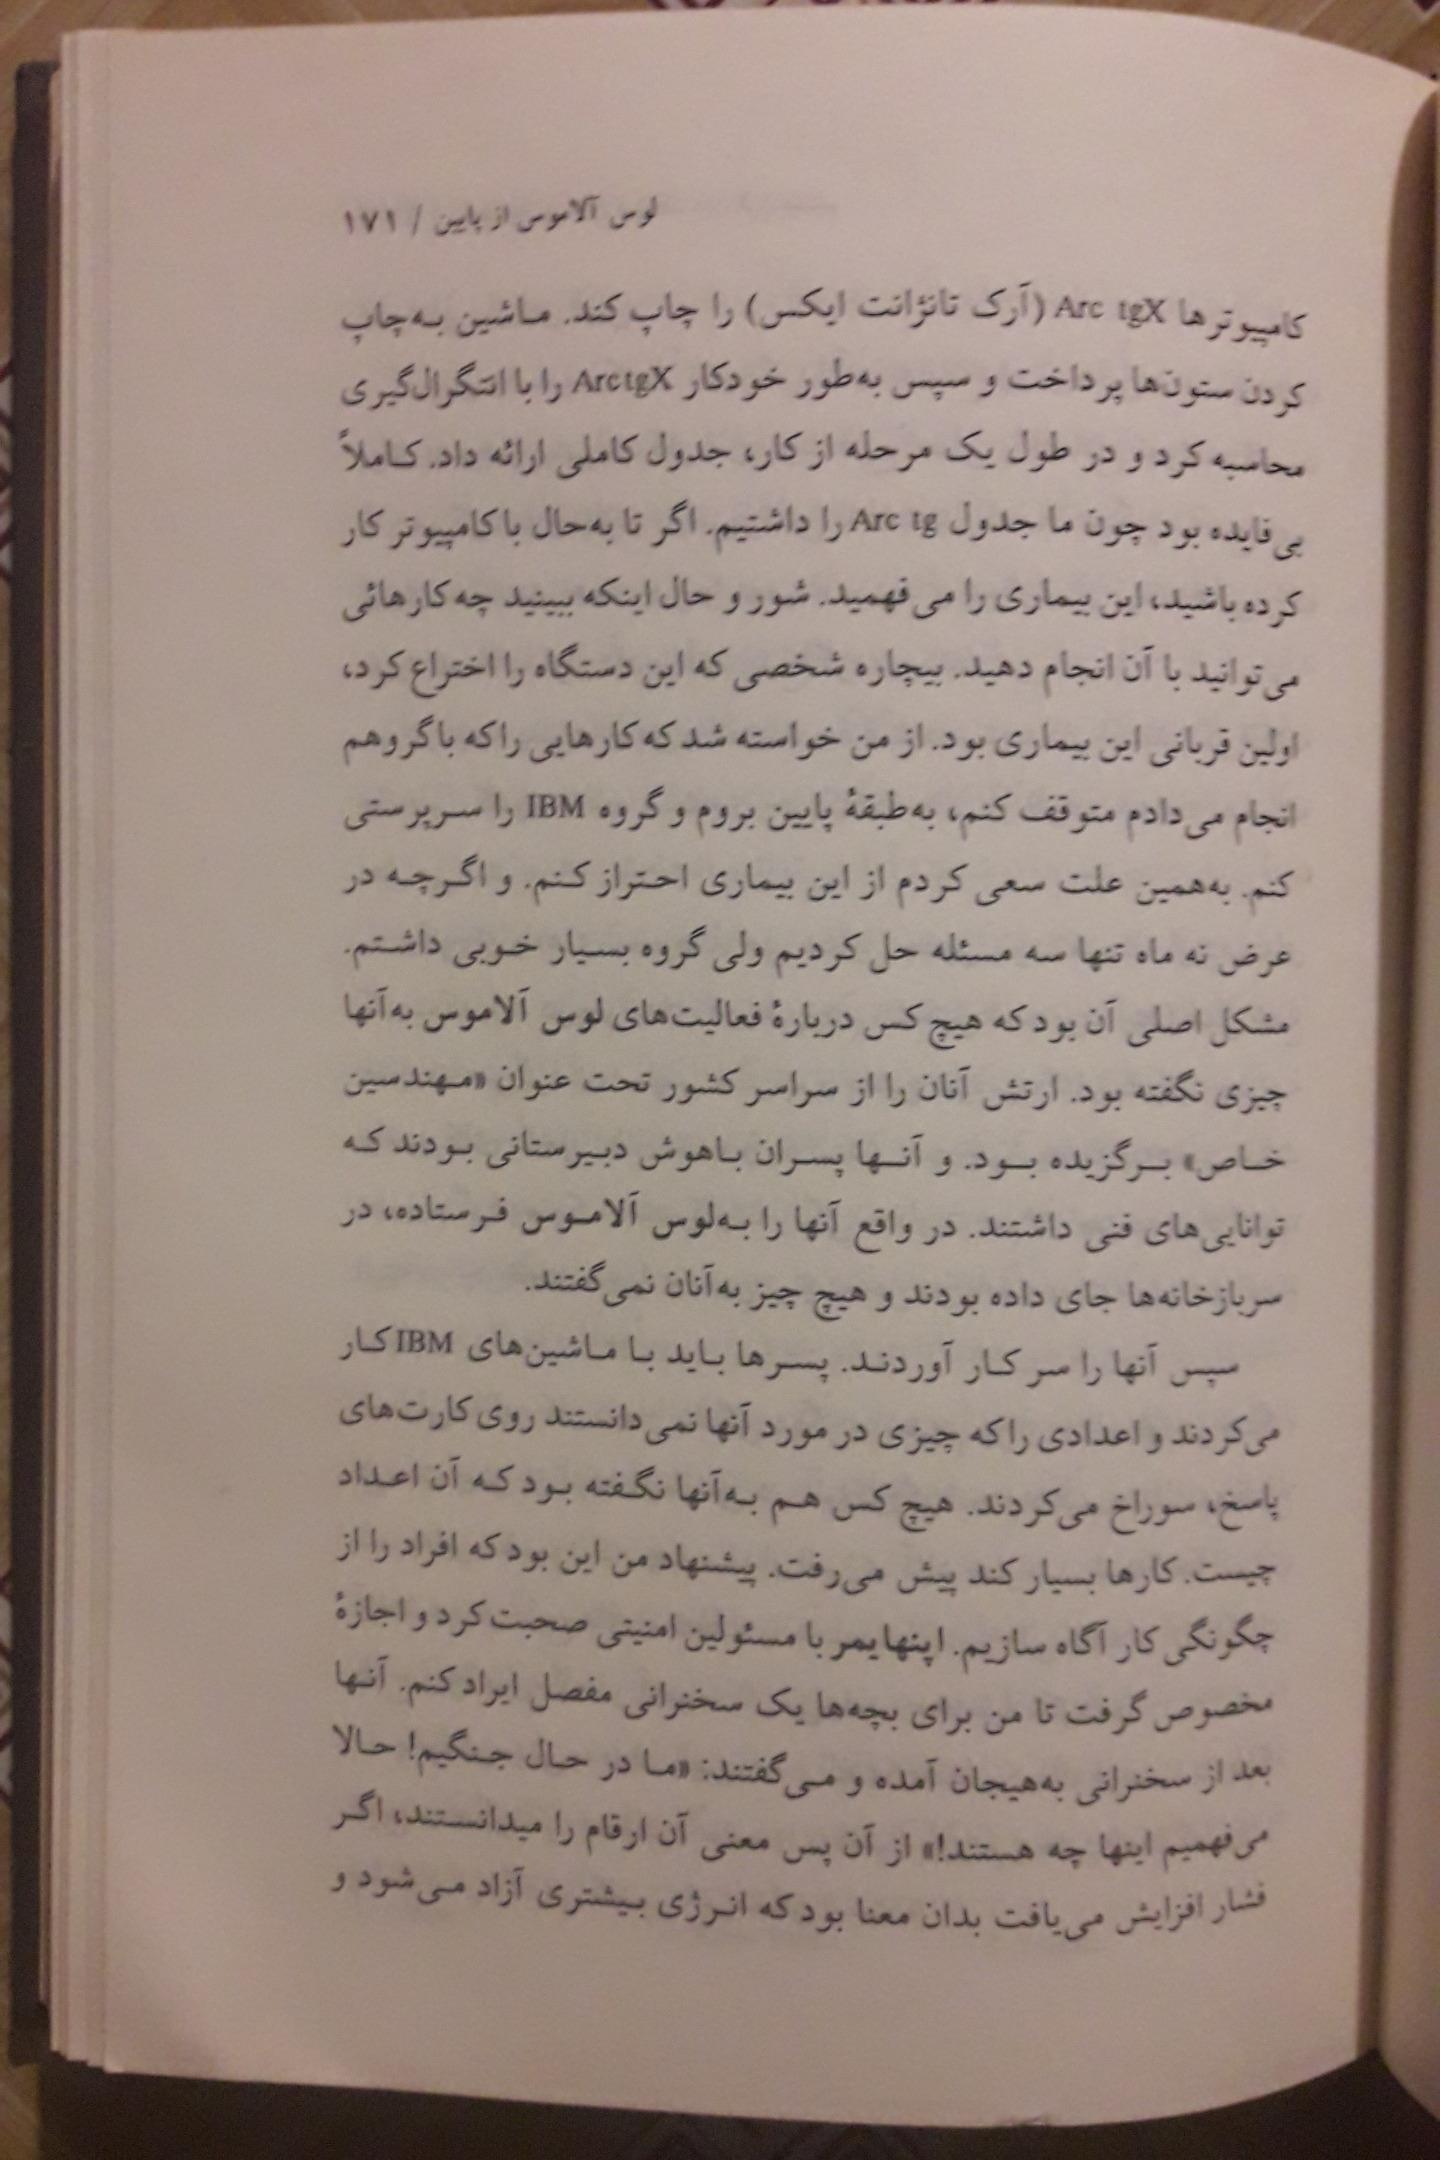 لوس آلاموس از پایین / ۱۷۱
کامپیوترها Arc tgX (آرک تانژانت ایکس) را چاپ کند. ماشین به‌چاپ
کردن ستون‌ها پرداخت و سپس به‌طور خودکار Arc tgX را با انتگرال‌گیری
محاسبه کرد و در طول یک مرحله از کار، جدول کاملی ارائه داد. کاملاً
بی‌فایده بود چون ما جدول Arc tg را داشتیم. اگر تا به‌حال با کامپیوتر کار
کرده باشید، این بیماری را می‌فهمید. شور و حال اینکه ببینید چه کارهائی
می‌توانید با آن انجام دهید. بیچاره شخصی که این دستگاه را اختراع کرد،
اولین قربانی این بیماری بود. از من خواسته شد که کارهایی را که با گروهم
انجام می‌دادم متوقف کنم، به‌طبقهٔ پایین بروم و گروه IBM را سرپرستی
کنم. به‌همین علت سعی کردم از این بیماری احتراز کنم. و اگرچه در
عرض نه ماه تنها سه مسئله حل کردیم ولی گروه بسیار خوبی داشتم.
مشکل اصلی آن بود که هیچ کس دربارهٔ فعالیت‌های لوس آلاموس به‌آنها
چیزی نگفته بود. ارتش آنان را از سراسر کشور تحت عنوان «مهندسین
خاص» برگزیده بود. و آنها پسران باهوش دبیرستانی بودند که
توانایی‌های فنی داشتند. در واقع آنها را به‌لوس آلاموس فرستاده، در
سربازخانه‌ها جای داده بودند و هیچ چیز به‌آنان نمی‌گفتند.
سپس آنها را سر کار آوردند. پسرها باید با ماشین‌های IBM کار
می‌کردند و اعدادی را که چیزی در مورد آنها نمی‌دانستند روی کارت‌های
پاسخ، سوراخ می‌کردند. هیچ کس هم به‌آنها نگفته بود که آن اعداد
چیست. کارها بسیار کند پیش می‌رفت. پیشنهاد من این بود که افراد را از
چگونگی کار آگاه سازیم. اپنهایمر با مسئولین امنیتی صحبت کرد و اجازهٔ
مخصوص گرفت تا من برای بچه‌ها یک سخنرانی مفصل ایراد کنم. آنها
بعد از سخنرانی به‌هیجان آمده و می‌گفتند: «ما در حال جنگیم! حالا
می‌فهمیم اینها چه هستند!» از آن پس معنی آن ارقام را میدانستند، اگر
فشار افزایش می‌یافت بدان معنا بود که انرژی بیشتری آزاد می‌شود و